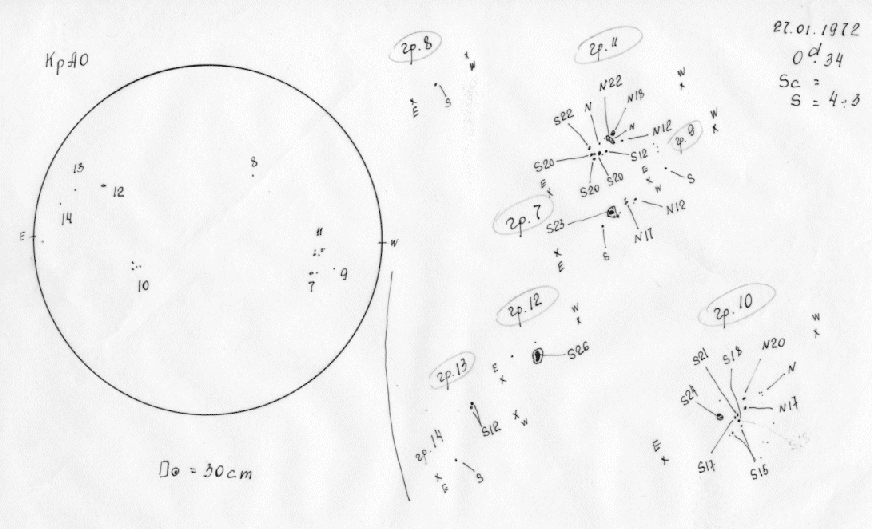 КрАО
E
W
13
12
14
8
10
11
7
9
D⊙ = 30cm
гр. 8
W
E
S
гр. 11
N22
N
N13
W
S22
N
N12
W
гр. 9
S20
S12
E
S20
S20
E
S
W
гр. 7
S23
N12
N17
S
E
27.01.1972
0d.34
Sc =
S = 4÷3
гр. 12
W
E
S26
гр. 13
S12
W
гр. 14
E
S
гр. 10
W
S21
S18
N20
N
S24
N17
E
S17
S15